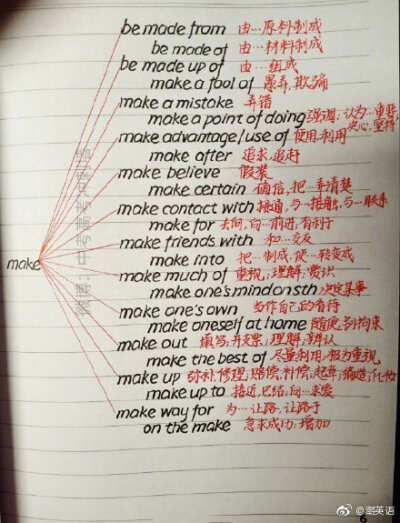 be made from 由…原料制成
be made of 由…材料制成
be made up of 由…组成
make a fool of 愚弄,欺骗
make a mistake 弄错
make a point of doing 强调;认为…重要;
决心,坚持
make advantage/use of 使用,利用
make after 追求,追赶
make believe 假装
make certain 确信,把…弄清楚
make contact with 接通,与…接触,与…联系
make for 去向,向…前进,有利于
make friends with 和…交友
make
make into 把…制成,使…转变成
make much of 重视,理解,赏识
make one's mind on sth 决定某事
make one's own 当作自己的看待
make oneself at home 随便,别拘束
make out 填写,开支票,理解,辨认
make the best of 尽量利用,极为重视
make up 弥补,修理,赔偿,补偿,起草,编造,化妆
make up to 接近,巴结,向…求爱
make way for 为…让路,让路于
on the make 急求成功,增加
@潮英语